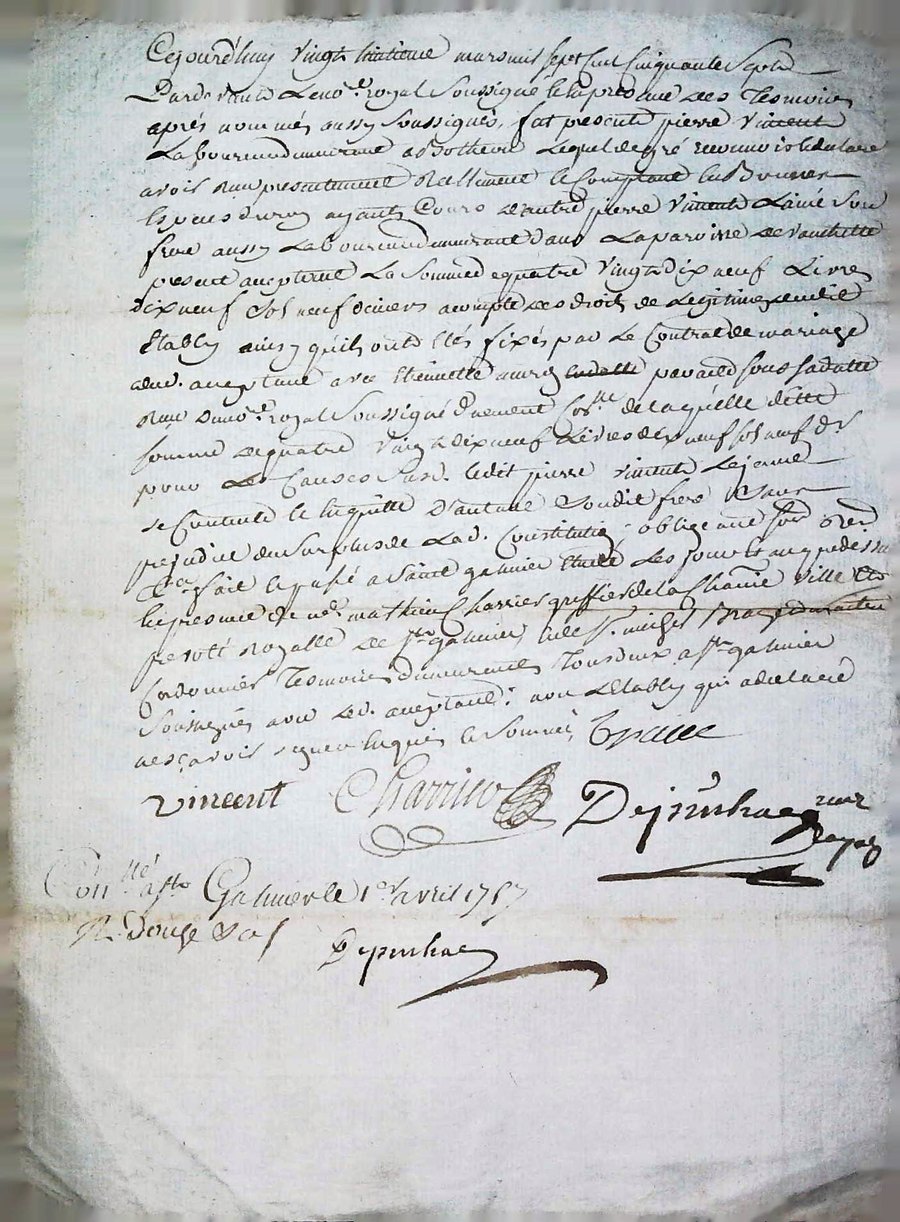 Cejourd'huy vingt huitieme mars mil sept cent cinquante sept
Pardevant Le no.re royal Soussigné et en presence des Tesmoins
après nommés aussy soussignés, fut present pierre vincent
Laboureur demeurant a Lequel de gré reconnoist et declare
avoir reçu presentement reellement et Comptant en Bonnes
Especes du roy ayants Cours d'autre pierre vincent L'ainé Son
frere aussy Laboureur demeurant dans La paroisse de
present acceptant La Somme de quatre vingt dix neuf Livres
dix neuf Sols neuf deniers acompte des droits de Legitime
Etably ainsy qu'ils ont étés fixés par Le Contrat de mariage
dud. acceptant avec Etiennette pardevant
no.re royal Soussigné de laquelle ditte
somme de quatre vingt dix neuf Livres dix neuf sols neuf d.rs
pour Les Causes susd. ledit pierre vincent Le jeune
se Contente et en quitte d'autant Sondit frere Sans
prejudice du Surplus de Lad. Constitution; obligeant
fait et passé a Saint galmier Etude Les jour et an que dessus
En presence de m.e mathieu Charrier greffier de la Ville et
prevoté Royalle de st galmier, et de s.r michel
Cordonnier Tesmoins demeurants Tous deux a st galmier
Soussignés avec Led. acceptant; non L'Etably qui a declaré
ne sçavoir signer Enquis et Sommé,
vincent Charrier
Con.llé a st Galmier le 1.er avril 1757
R. Douse sols